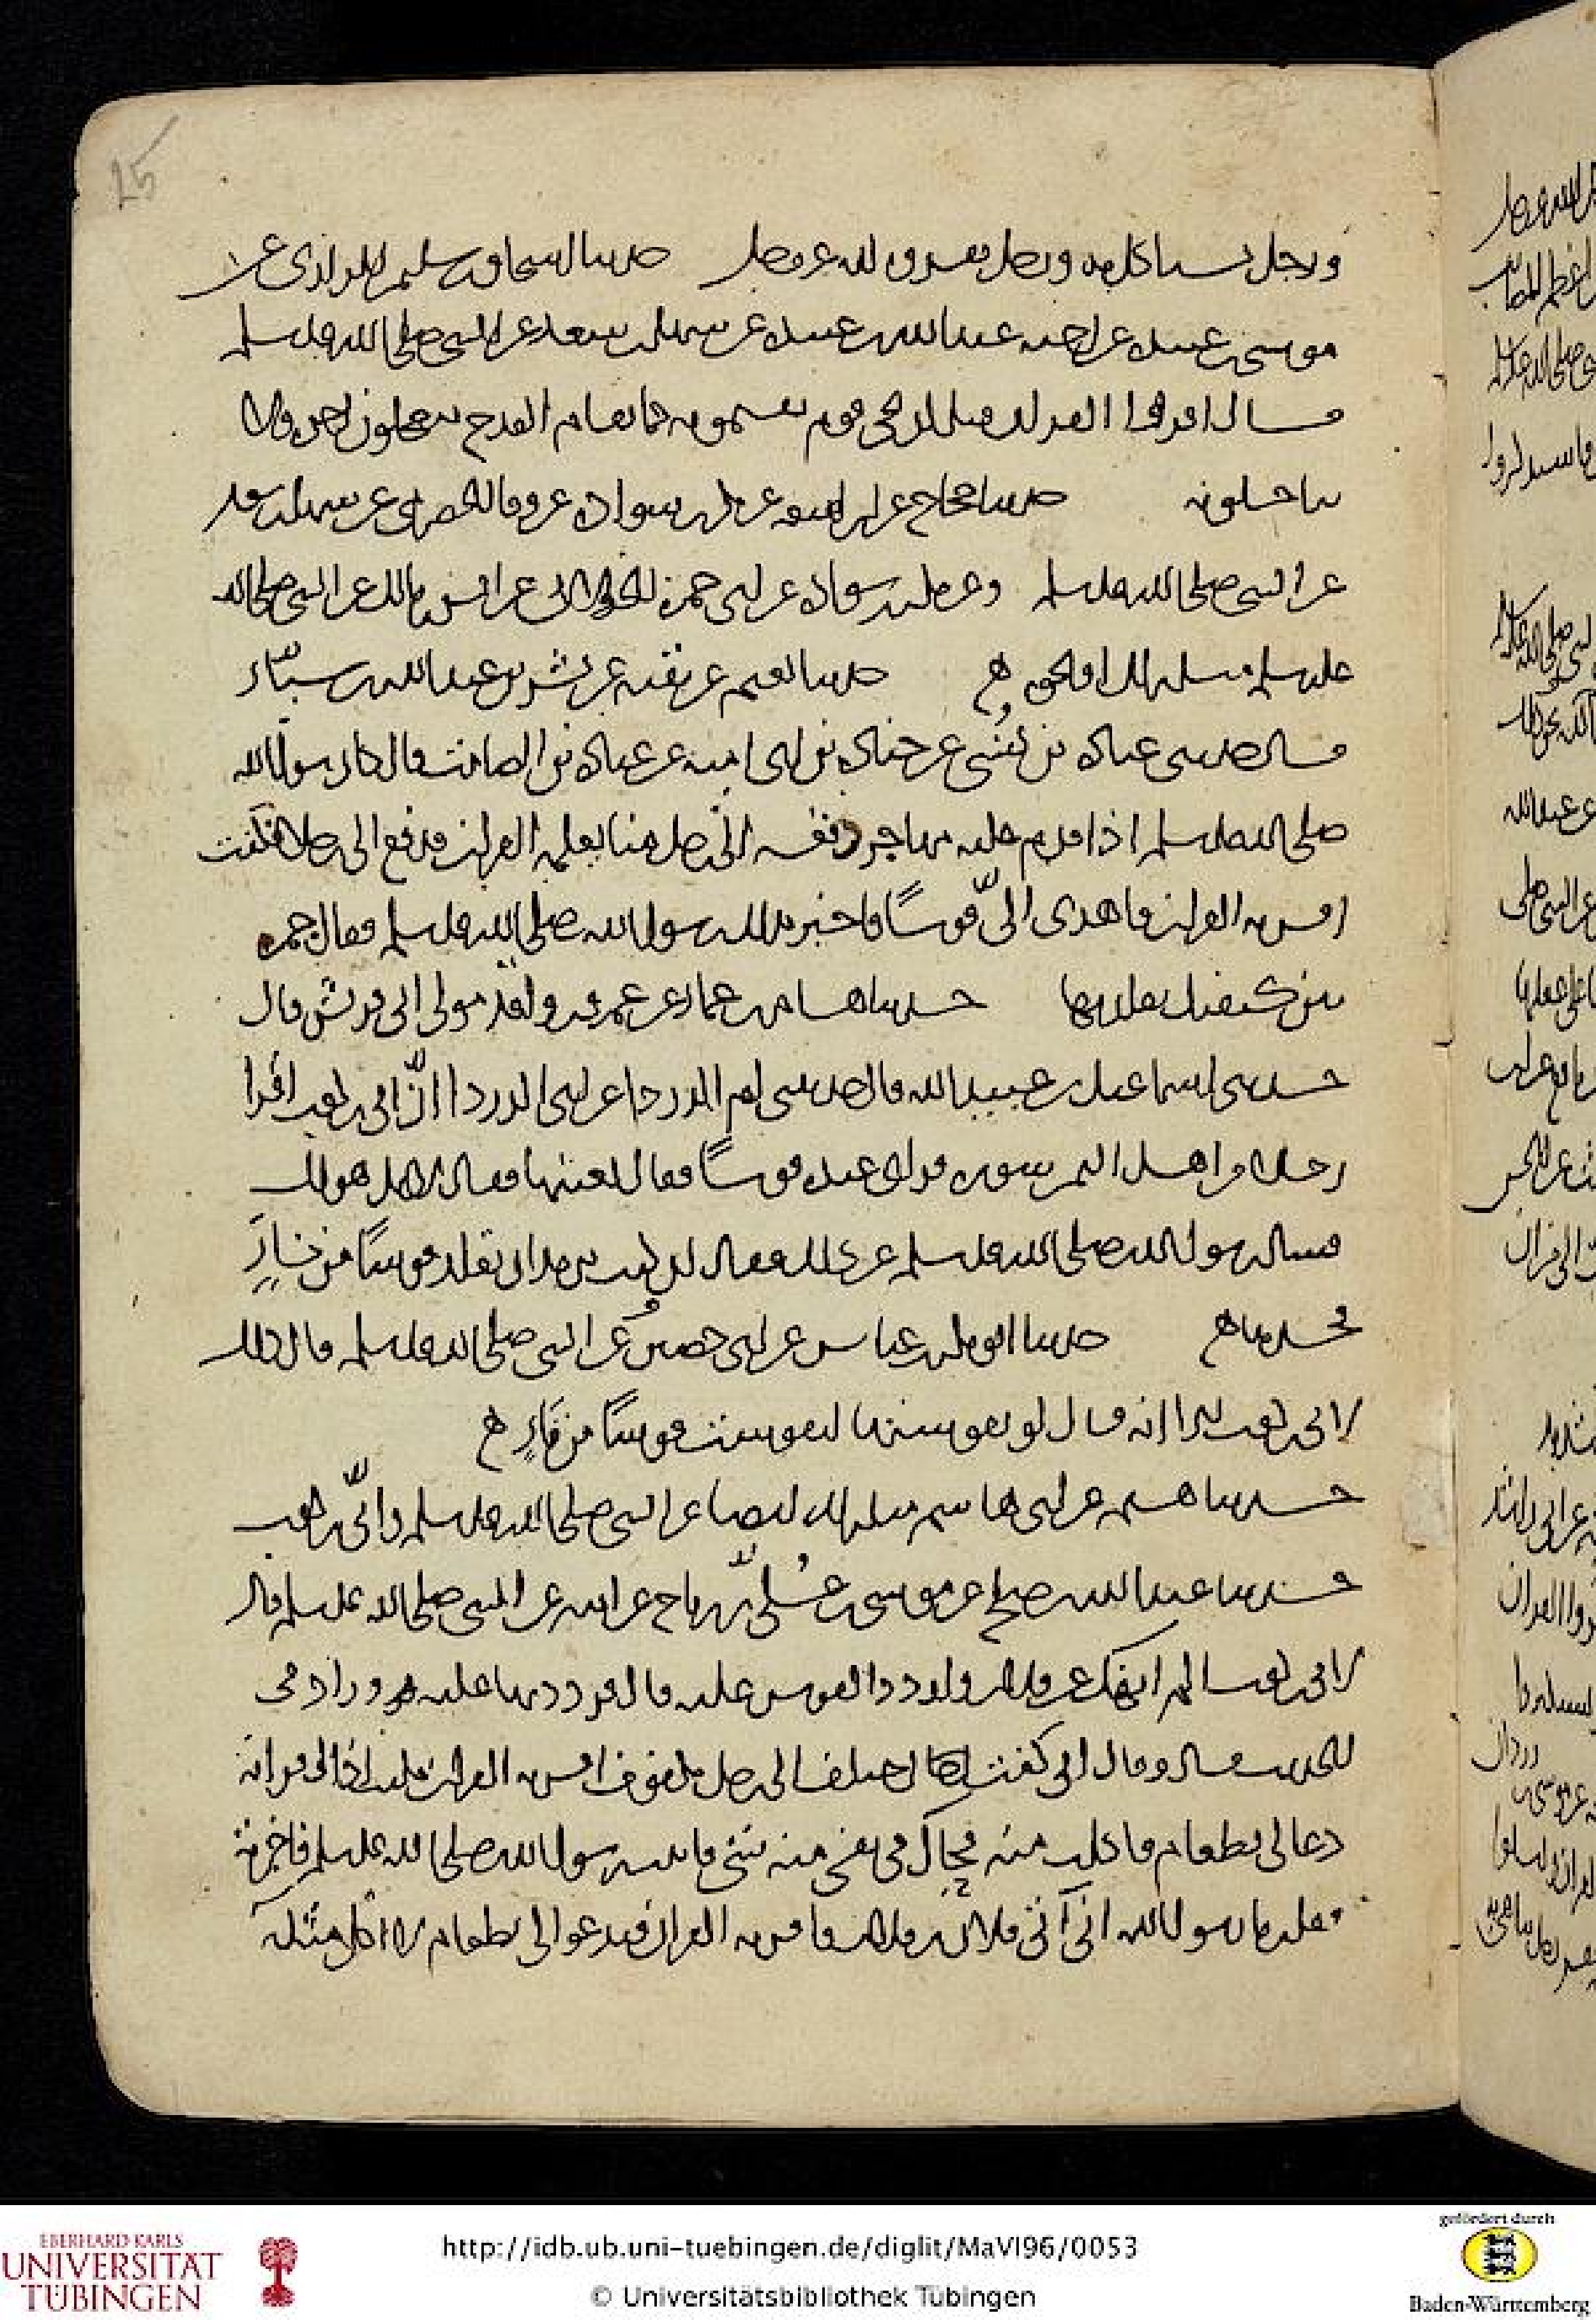 25
ورجل يستأكل به ورجل يقرؤه لله عز وجل حدثنا إسحاق بن سليمن الرازي عن
موسى بن عبيدة عن أخيه عبد الله بن عبيدة عن سهل بن سعد عن النبي صلى الله عليه وسلم
قال اقرؤا القران قبل ان يجي قوم يقيمونه كما يقام القدح يتعجلون اجره ولا
يتاجلونه حدثنا حجاج عن ابن لهيعة عن بكر بن سوادة عن وفا الحضرمي عن سهل بن سعد
عن النبي صلى الله عليه وسلم وعن بكر بن سوادة عن ابي حمزة الخولاني عن انس بن مالك عن النبي صلى الله
عليه وسلم مثل ذلك او نحوه حدثنا نعيم عن بقية عن بشر بن عبد الله بن يسار
قال حدثني عبادة بن نسي عن جنادة بن ابي امية عن عبادة بن الصامت قال كان رسول الله
صلى الله عليه وسلم اذا قدم عليه مهاجر دفعه الى رجل منا يعلمه القران فدفع الى رجلا فكنت
اقريه القران فاهدى اليّ قوسًا فاخبرت بذلك رسول الله صلى الله عليه وسلم فقال جمرة
بين كتفيك تقلدتها حدثنا هشام بن عمار عن عمرو بن واقد مولى ال قريش قال
حدثني اسماعيل بن عبيد الله قال حدثتني ام الدردا عن ابي الدردا انّ ابي بن كعب اقرا
رجلا من اهل اليمن سورة فراى عنده قوسًا فقال بعنيها فقال لا بل هو لك
فسال رسول الله صلى الله عليه وسلم عن ذلك فقال ان كنت تريد ان تقلد قوسًا من نار
فخذها حدثنا ابو بكر بن عياش عن ابي حصين عن النبي صلى الله عليه وسلم قال ذلك
لابي بن كعب الا انه قال لو تقوستها لتقوست قوسًا من نار
حدثنا هشيم عن ابي هاشم مثل ذلك ايضا عن النبي صلى الله عليه وسلم وابيّ بن كعب
حدثنا عبد الله بن صلح عن موسى بن عُليّ بن رباح عن ابيه عن النبي صلى الله عليه وسلم قال
لابي بن كعب الم انهك عن فلان ولردد القوس عليه قال فرددتها عليه وزاد في
الحديث قال وقال ابي كنت اختلف الى رجل مكفوف اقريه القران فكنت اذا اقراته
دعا لي بطعام فاكلت منه فحاك في نفسي منه شي فاتيت رسول الله صلى الله عليه وسلم فاخبرته
فقلت يا رسول الله اني آتي فلان بن فلان فاقريه القران فيدعو لي بطعام لا اكل مثله
EBERHARD KARLS
UNIVERSITÄT
TÜBINGEN
http://idb.ub.uni-tuebingen.de/diglit/MaVI96/0053
© Universitätsbibliothek Tübingen
gefördert durch
Baden-Württemberg